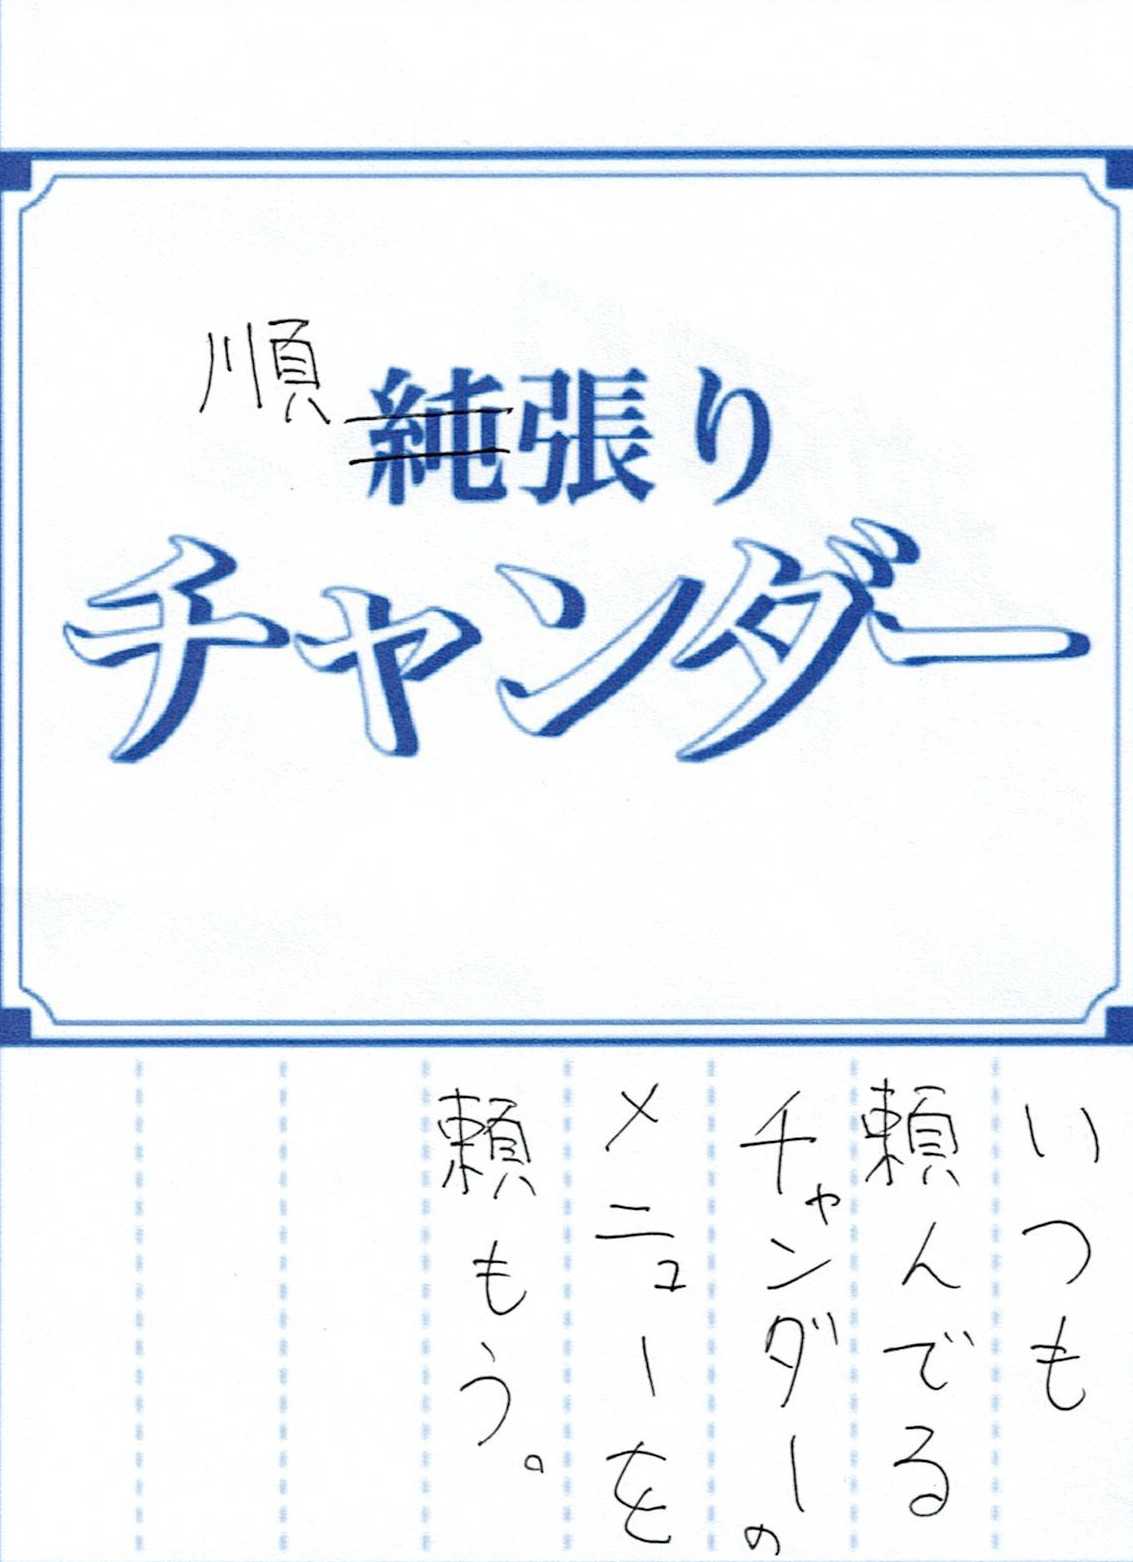 順
純張り
チャンダー
いつも
頼んでる
チャンダーの
メニューを
頼もう。